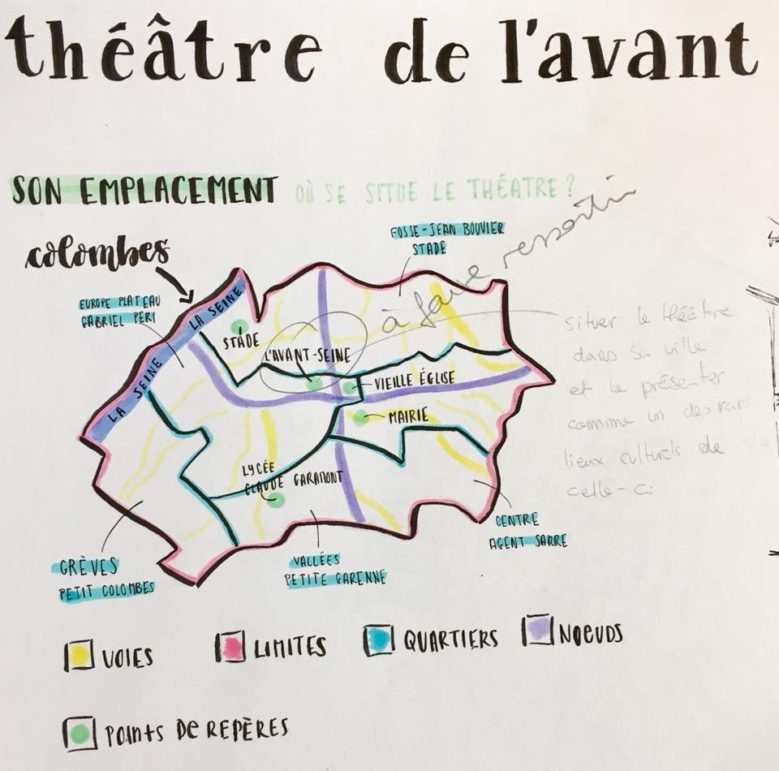 théâtre de l'avant
SON EMPLACEMENT OÙ SE SITUE LE THÉATRE?
colombes
FOSSE-JEAN BOUVIER
STADE
à faire ressortir
EUROPE PLATEAU
GABRIEL PERI
LA SEINE
LA SEINE
STADE
L'AVANT-SEINE
VIEILLE ÉGLISE
MAIRIE
LYCÉE
CLAUDE GARAMONT
situer le théâtre
dans sa ville
et le présenter
comme un des rares
lieux culturels de
celle-ci
CENTRE
AGENT SARRE
GRÈVES
PETIT COLOMBES
VALLÉES
PETITE GARENNE
VOIES
LIMITES
QUARTIERS
NOEUDS
POINTS DE REPÈRES